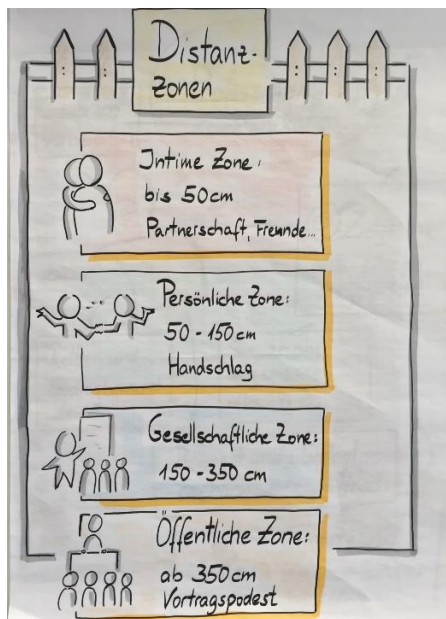 Distanz-
zonen
Intime Zone:
bis 50cm
Partnerschaft, Freunde...
Persönliche Zone:
50 - 150cm
Handschlag
Gesellschaftliche Zone:
150 - 350 cm
Öffentliche Zone:
ab 350cm
Vortragspodest